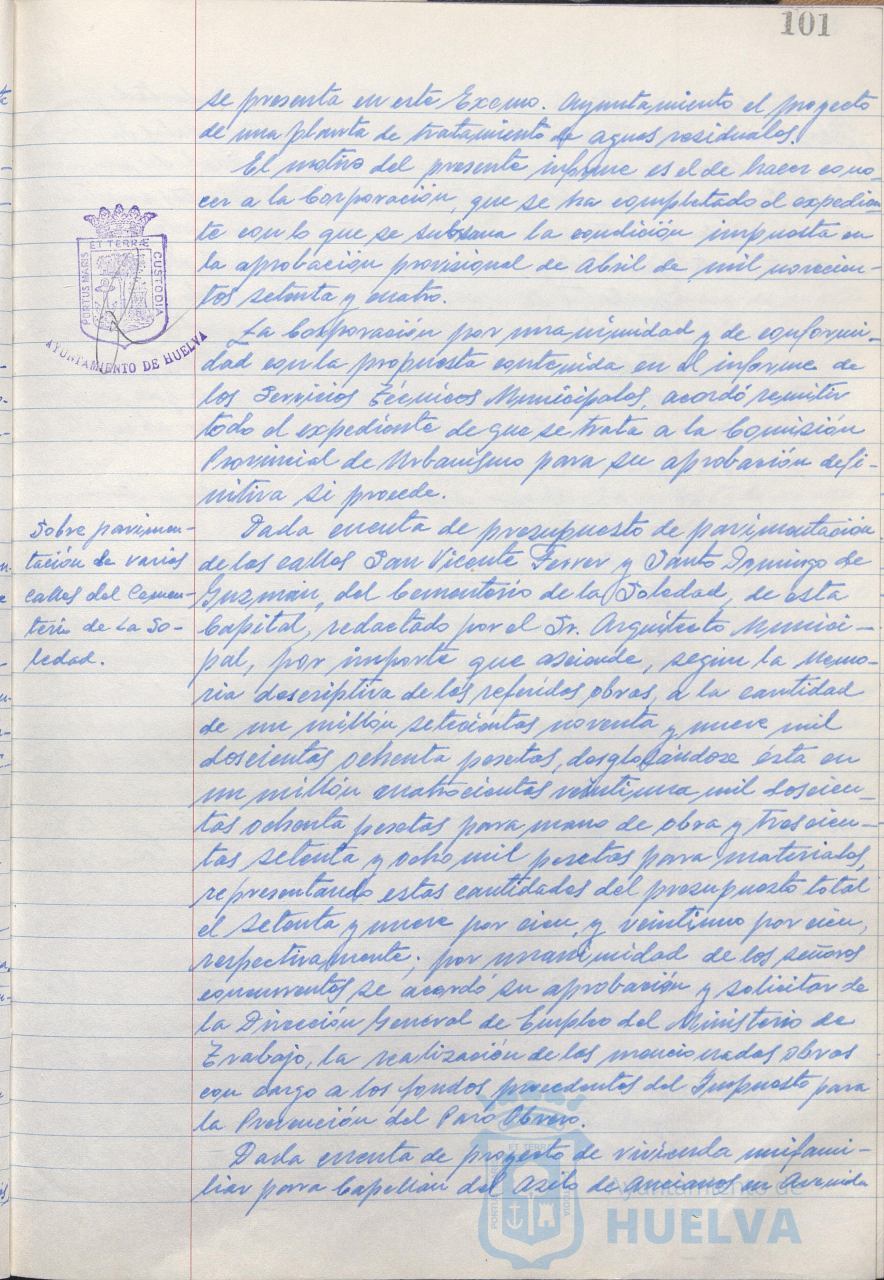 101
se presenta en este Excmo. Ayuntamiento el proyecto
de una planta de tratamiento de aguas residuales.
El motivo del presente informe es el de hacer cono-
cer a la Corporación, que se ha completado el expedien-
te con lo que se subsana la condición impuesta en
la aprobación provisional de Abril de mil novecien-
tos setenta y cuatro.
PORTUS MARIS ET TERRÆ CUSTODIA
AYUNTAMIENTO DE HUELVA
La Corporación por unanimidad y de conformi-
dad con la propuesta contenida en el informe de
los Servicios Técnicos Municipales, acordó remitir
todo el expediente de que se trata a la Comisión
Provincial de Urbanismo para su aprobación defi-
nitiva si procede.
Sobre pavimen-
tación de varias
calles del Cemen-
terio de La So-
ledad.
Dada cuenta de presupuesto de pavimentación
de las calles San Vicente Ferrer y Santo Domingo de
Guzmán, del Cementerio de la Soledad, de esta
Capital, redactado por el Sr. Arquitecto Munici-
pal, por importe que asciende, según la Memo-
ria descriptiva de las referidas obras, a la cantidad
de un millón setecientas noventa y nueve mil
doscientas ochenta pesetas, desglosándose ésta en
un millón cuatrocientas veintiuna mil doscien-
tas ochenta pesetas para mano de obra y trescien-
tas setenta y ocho mil pesetas para materiales,
representando estas cantidades del presupuesto total
el setenta y nueve por cien, y veintiuno por cien,
respectivamente; por unanimidad de los señores
concurrentes se acordó su aprobación y solicitar de
la Dirección General de Empleo del Ministerio de
Trabajo, la realización de las mencionadas obras
con cargo a los fondos procedentes del Impuesto para
la Prevención del Paro Obrero.
Dada cuenta de proyecto de vivienda unifami-
liar para Capellán del Asilo de Ancianos en Avenida
Ayuntamiento de
HUELVA